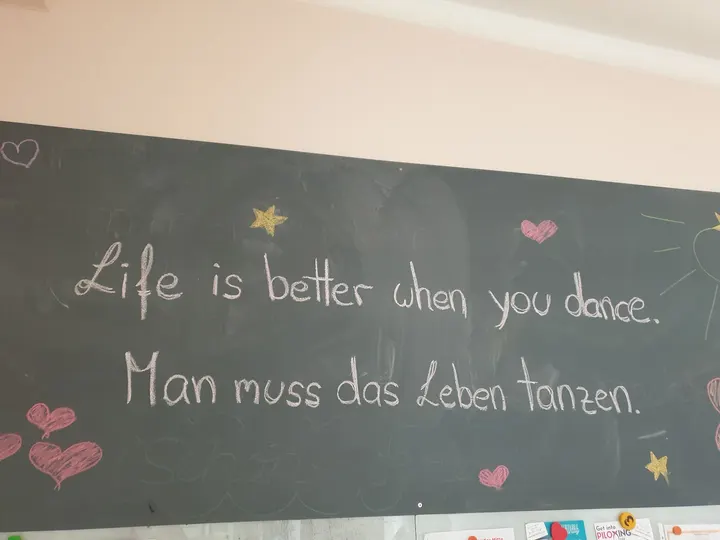 Life is better when you dance.
Man muss das Leben tanzen.
Get into
PILOXING